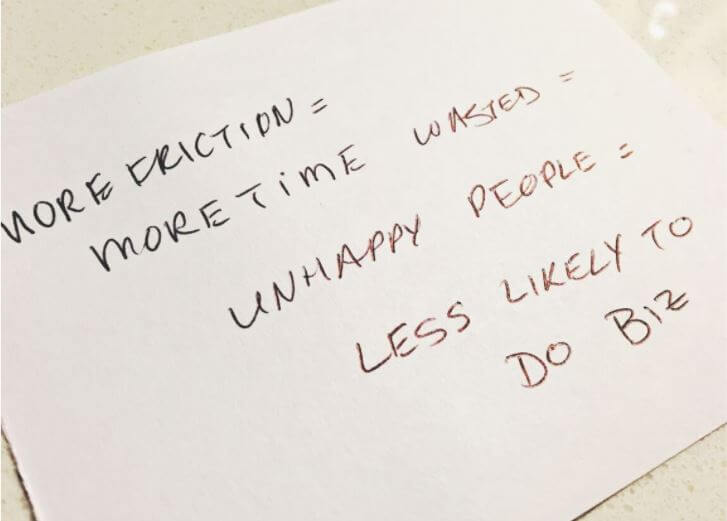 MORE FRICTION =
MORE TIME WASTED =
UNHAPPY PEOPLE =
LESS LIKELY TO
DO BIZ